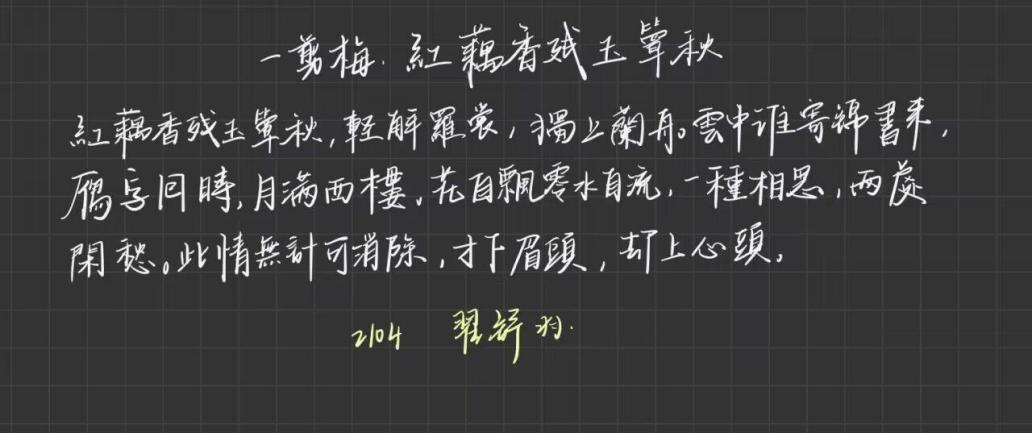 一剪梅.紅藕香残玉簟秋
紅藕香残玉簟秋,軽解羅裳,獨上蘭舟。雲中誰寄錦書来,
雁字回時,月滿西樓。花自飄零水自流,一種相思,兩處
閑愁。此情無計可消除,才下眉頭,却上心頭。
2104 翟舒羽.